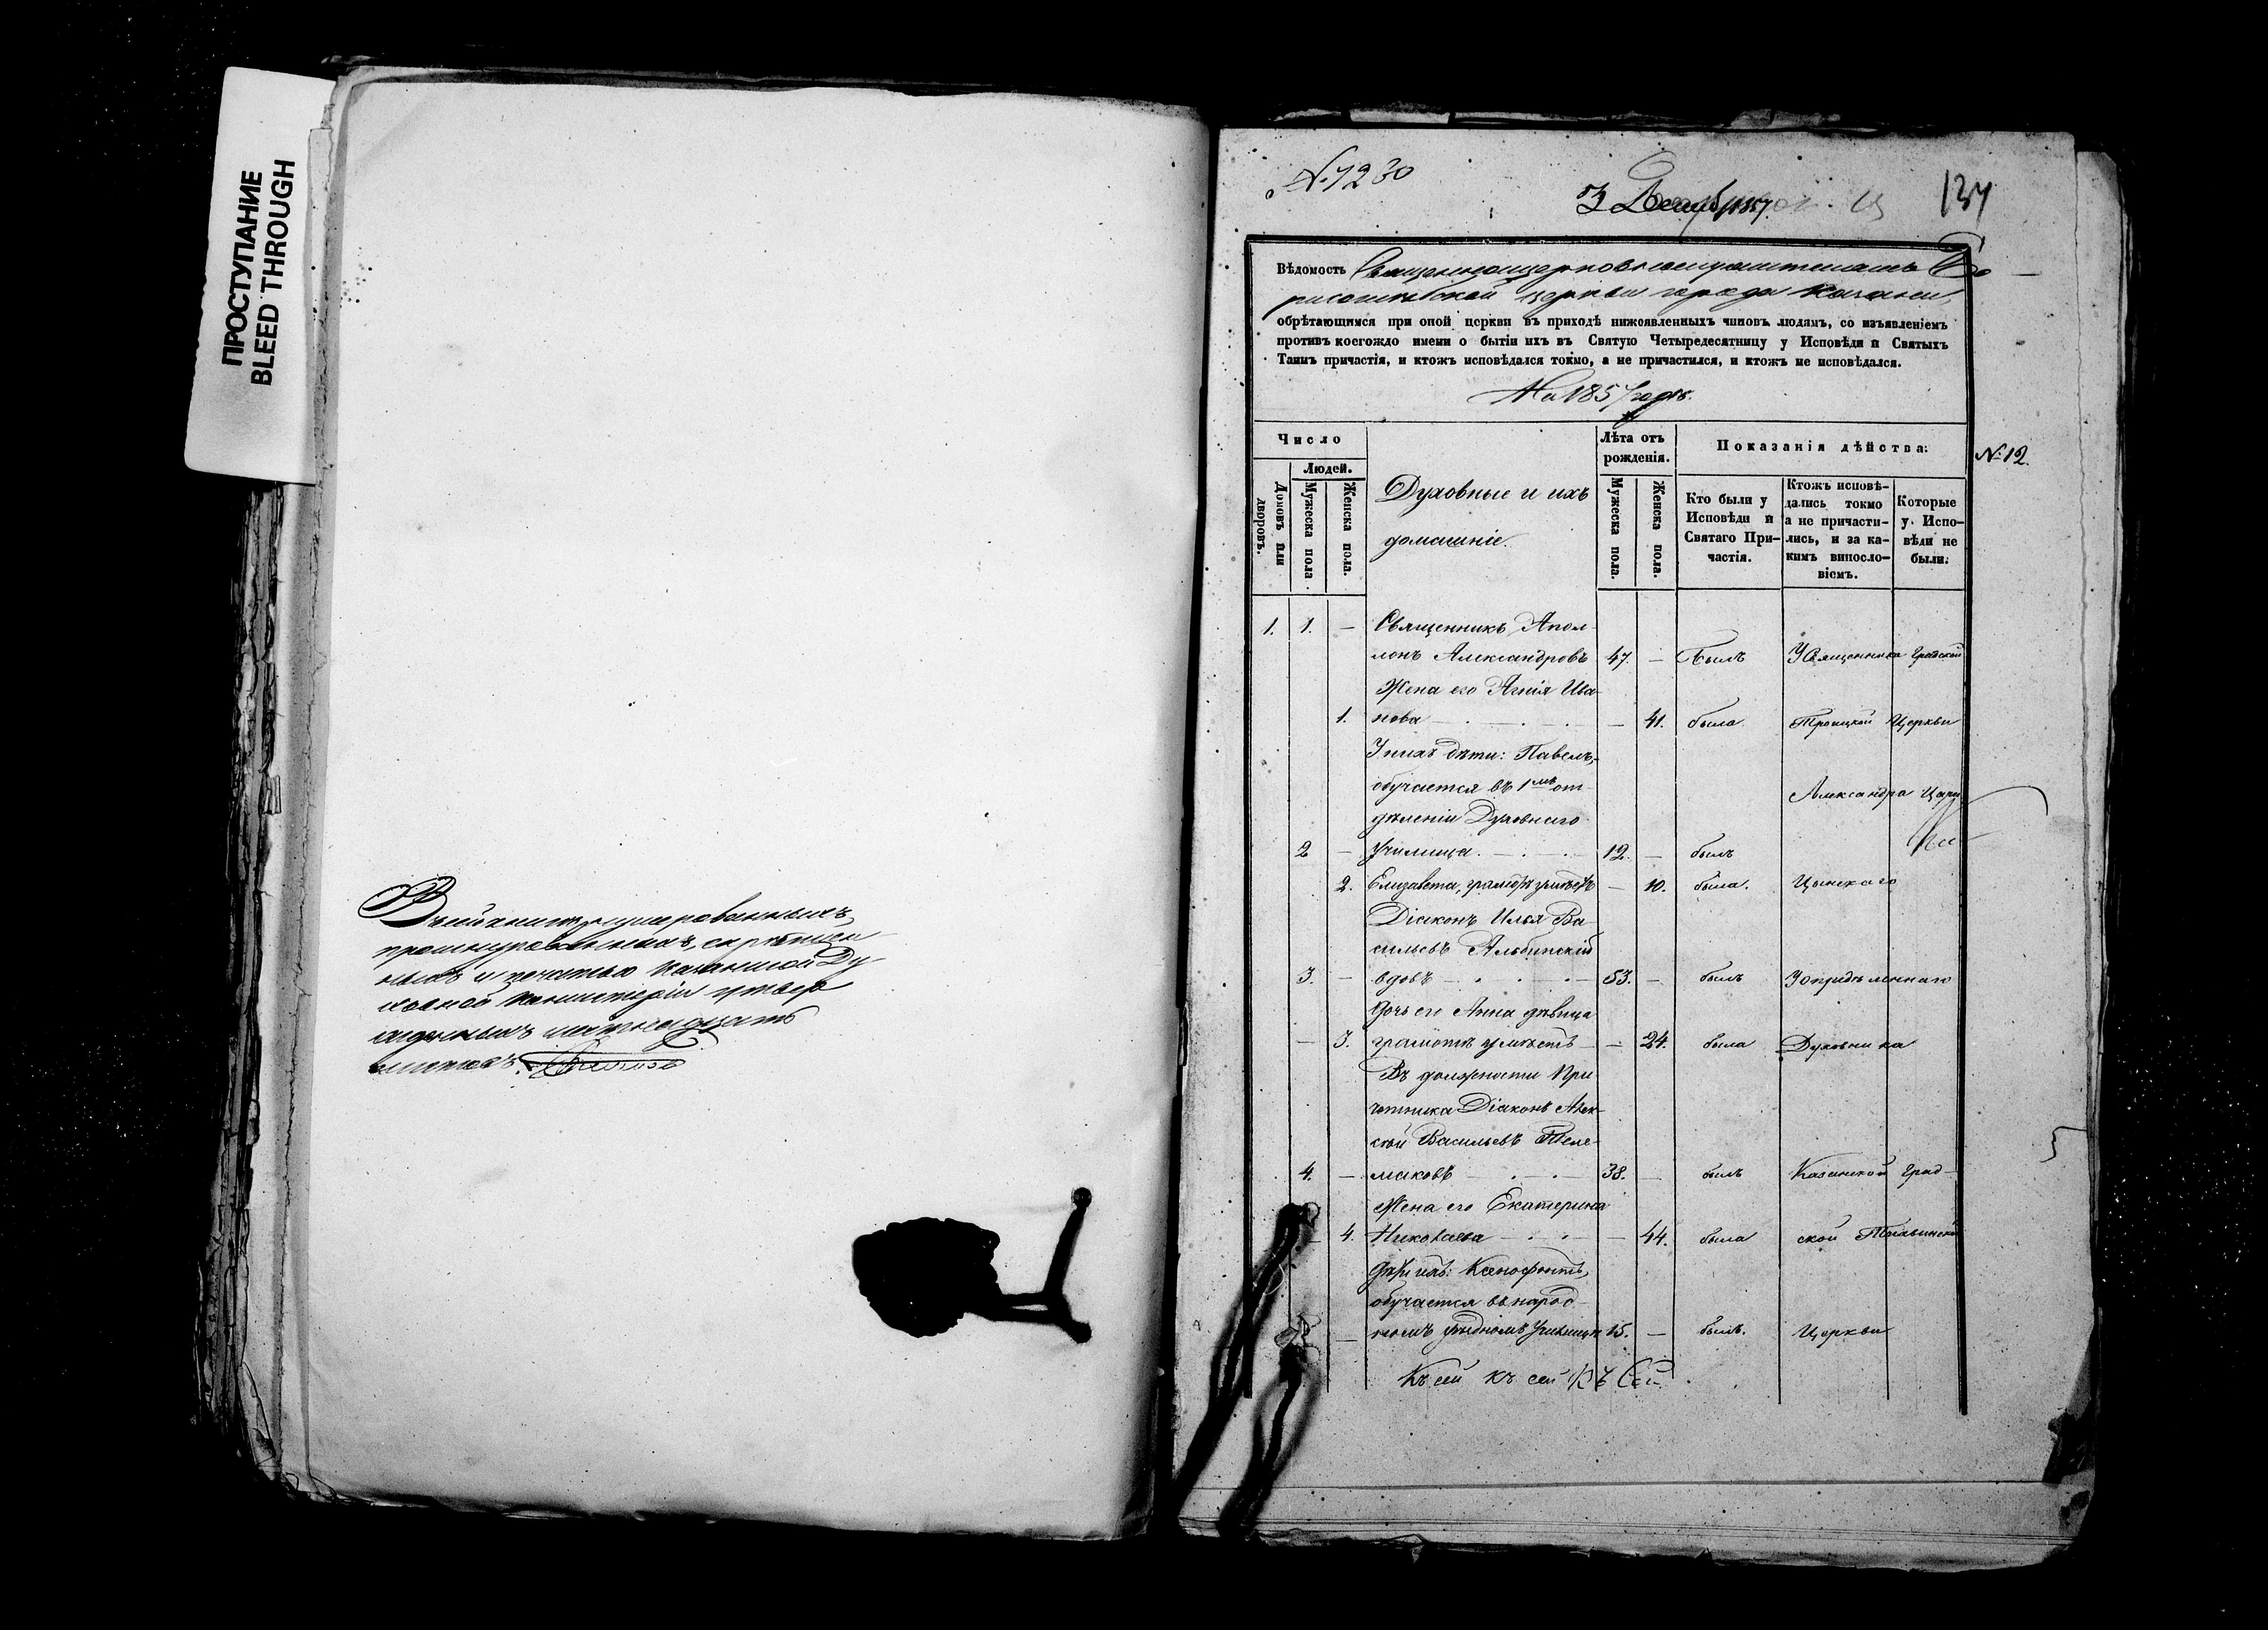 ПРОСТУПАНИЕ
BLEED THROUGH
въ сей книгѣ нумерованныхъ,
прошнурованныхъ, скрѣплен
ныхъ и печатью Казанской Ду
ховной Консисторіи утвер
жденныхъ
листовъ.
№ 7230
3 Декабря 1857.
134
Вѣдомость Священноцерковнослужителямъ Бо
рисоглѣбской церкви города Казани,
обрѣтающимся при оной церкви въ приходѣ нижоявленныхъ чиповъ людямъ, со изъявленіемъ
противъ коегождо имени о бытіи ихъ въ Святую Четыредесятницу у Исповѣди и Святыхъ
Таинъ причастія, и ктожъ исповѣдался токмо, а не причастился, и ктожъ не исповѣдался.
На 1857 годъ.
Число
Людей.
Домовъ или дворовъ.
Мужеска пола
Женска пола.
Духовные и ихъ
домашніе.
Лѣта отъ
рожденія.
Мужеска пола.
Женска пола.
Показанія дѣйства:
Кто были у
Исповѣди и
Святаго При-
частія.
Ктожъ исповѣ-
дались токмо
а не причасти-
лись, и за ка-
кимъ виносло-
віемъ.
Которые
у Испо-
вѣди не
были:
№ 12.
1. 1. — Священникъ Апол-
лонъ Александровъ 47. — Былъ У Священника Градской
Жена его Агнія Ива-
1. нова — 41. была Троицкой Церкви
У нихъ дѣти: Павелъ,
обучается въ 1мъ от-
дѣленіи Духовнаго
Александра Цари
2 — Училища. 12. — былъ
2. Елизавета, грамотѣ умѣетъ — 10. была. Цынскаго
Діаконъ Илья Ва-
сильевъ Альбинскій
3. — вдовъ 53. — былъ У опредѣленнаго
Дочь его Анна дѣвица
— 3. грамотѣ умѣетъ — 24. была Духовника
Въ должности При
четника Діаконъ Алек-
сѣй Васильевъ Теле-
4. — маковъ 38. — былъ Казанской Град-
Жена его Екатерина
— 4. Николаева — 44. была ской Тихвинской
Дѣти ихъ: Ксенофонтъ,
обучается въ народ-
— номъ уѣздномъ Училищѣ 15. — былъ. Церкви
Къ сей къ сей Къ Сей